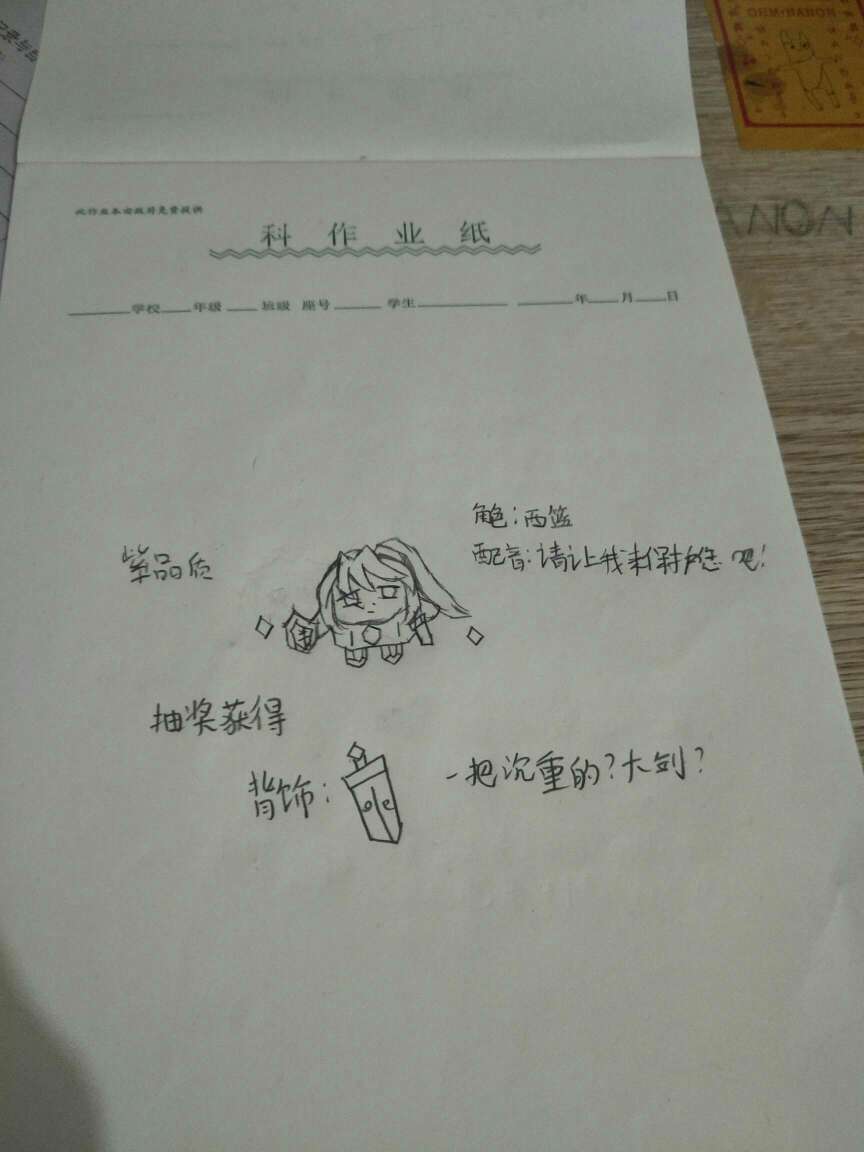 此作业本由政府免费提供
科作业纸
学校 年级 班级 座号 学生 年 月 日
角色:西篮
紫品质
配音:请让我来保护您吧!
抽奖获得
背饰:
一把沉重的?大剑?